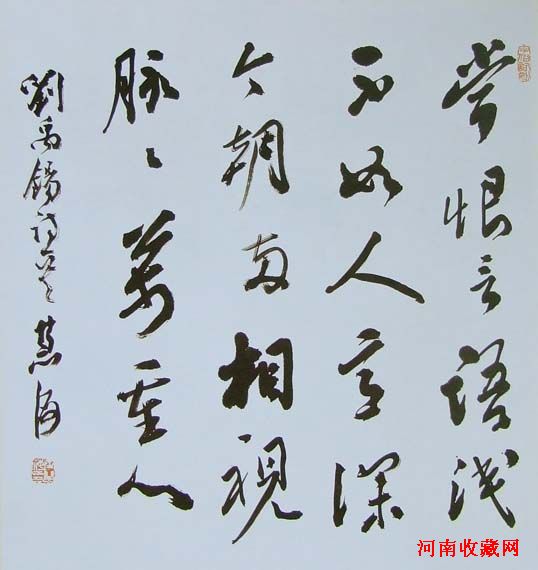 常恨言語浅
不如人意深
今朝両相視
脉々萬重心
劉禹錫詩
河南收藏网